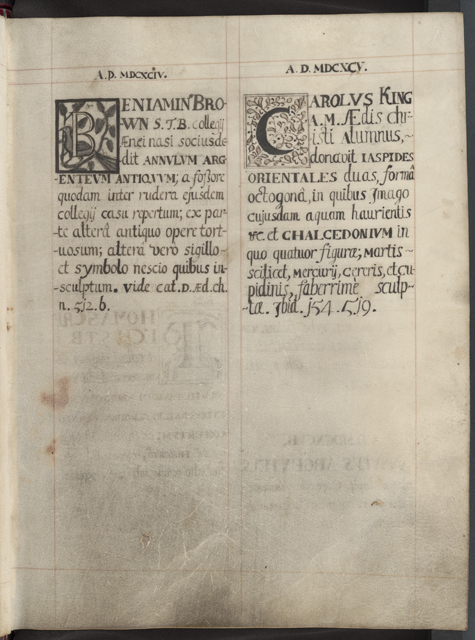 A. D. MDCXCIV.
BENIAMIN BRO-
WN S.T.B. collegij
Ænei nasi socius de-
dit ANNVLVM ARG-
ENTEVM ANTIQVVM; a fossore
quodam inter rudera ejusdem
collegij casu repertum; ex par-
te alterâ antiquo opere tort-
uosum; alterâ verò sigillo
et symbolo nescio quibus in-
sculptum. Vide cat. D. Æd. ch.
n. 512. 6.
A. D. MDCXCV.
CAROLVS KING
A. M. Ædis chr-
isti Alumnus,
donavit IASPIDES
ORIENTALES duas, formâ
octogonâ, in quibus Imago
cujusdam aquam haurientis
&c. et CHALCEDONIVM in
quo quatuor figuræ; Martis
scilicet, Mercurij, Cereris, et Cu-
pidinis, faberrimè sculp-
tæ. Ibid. 154. 519.